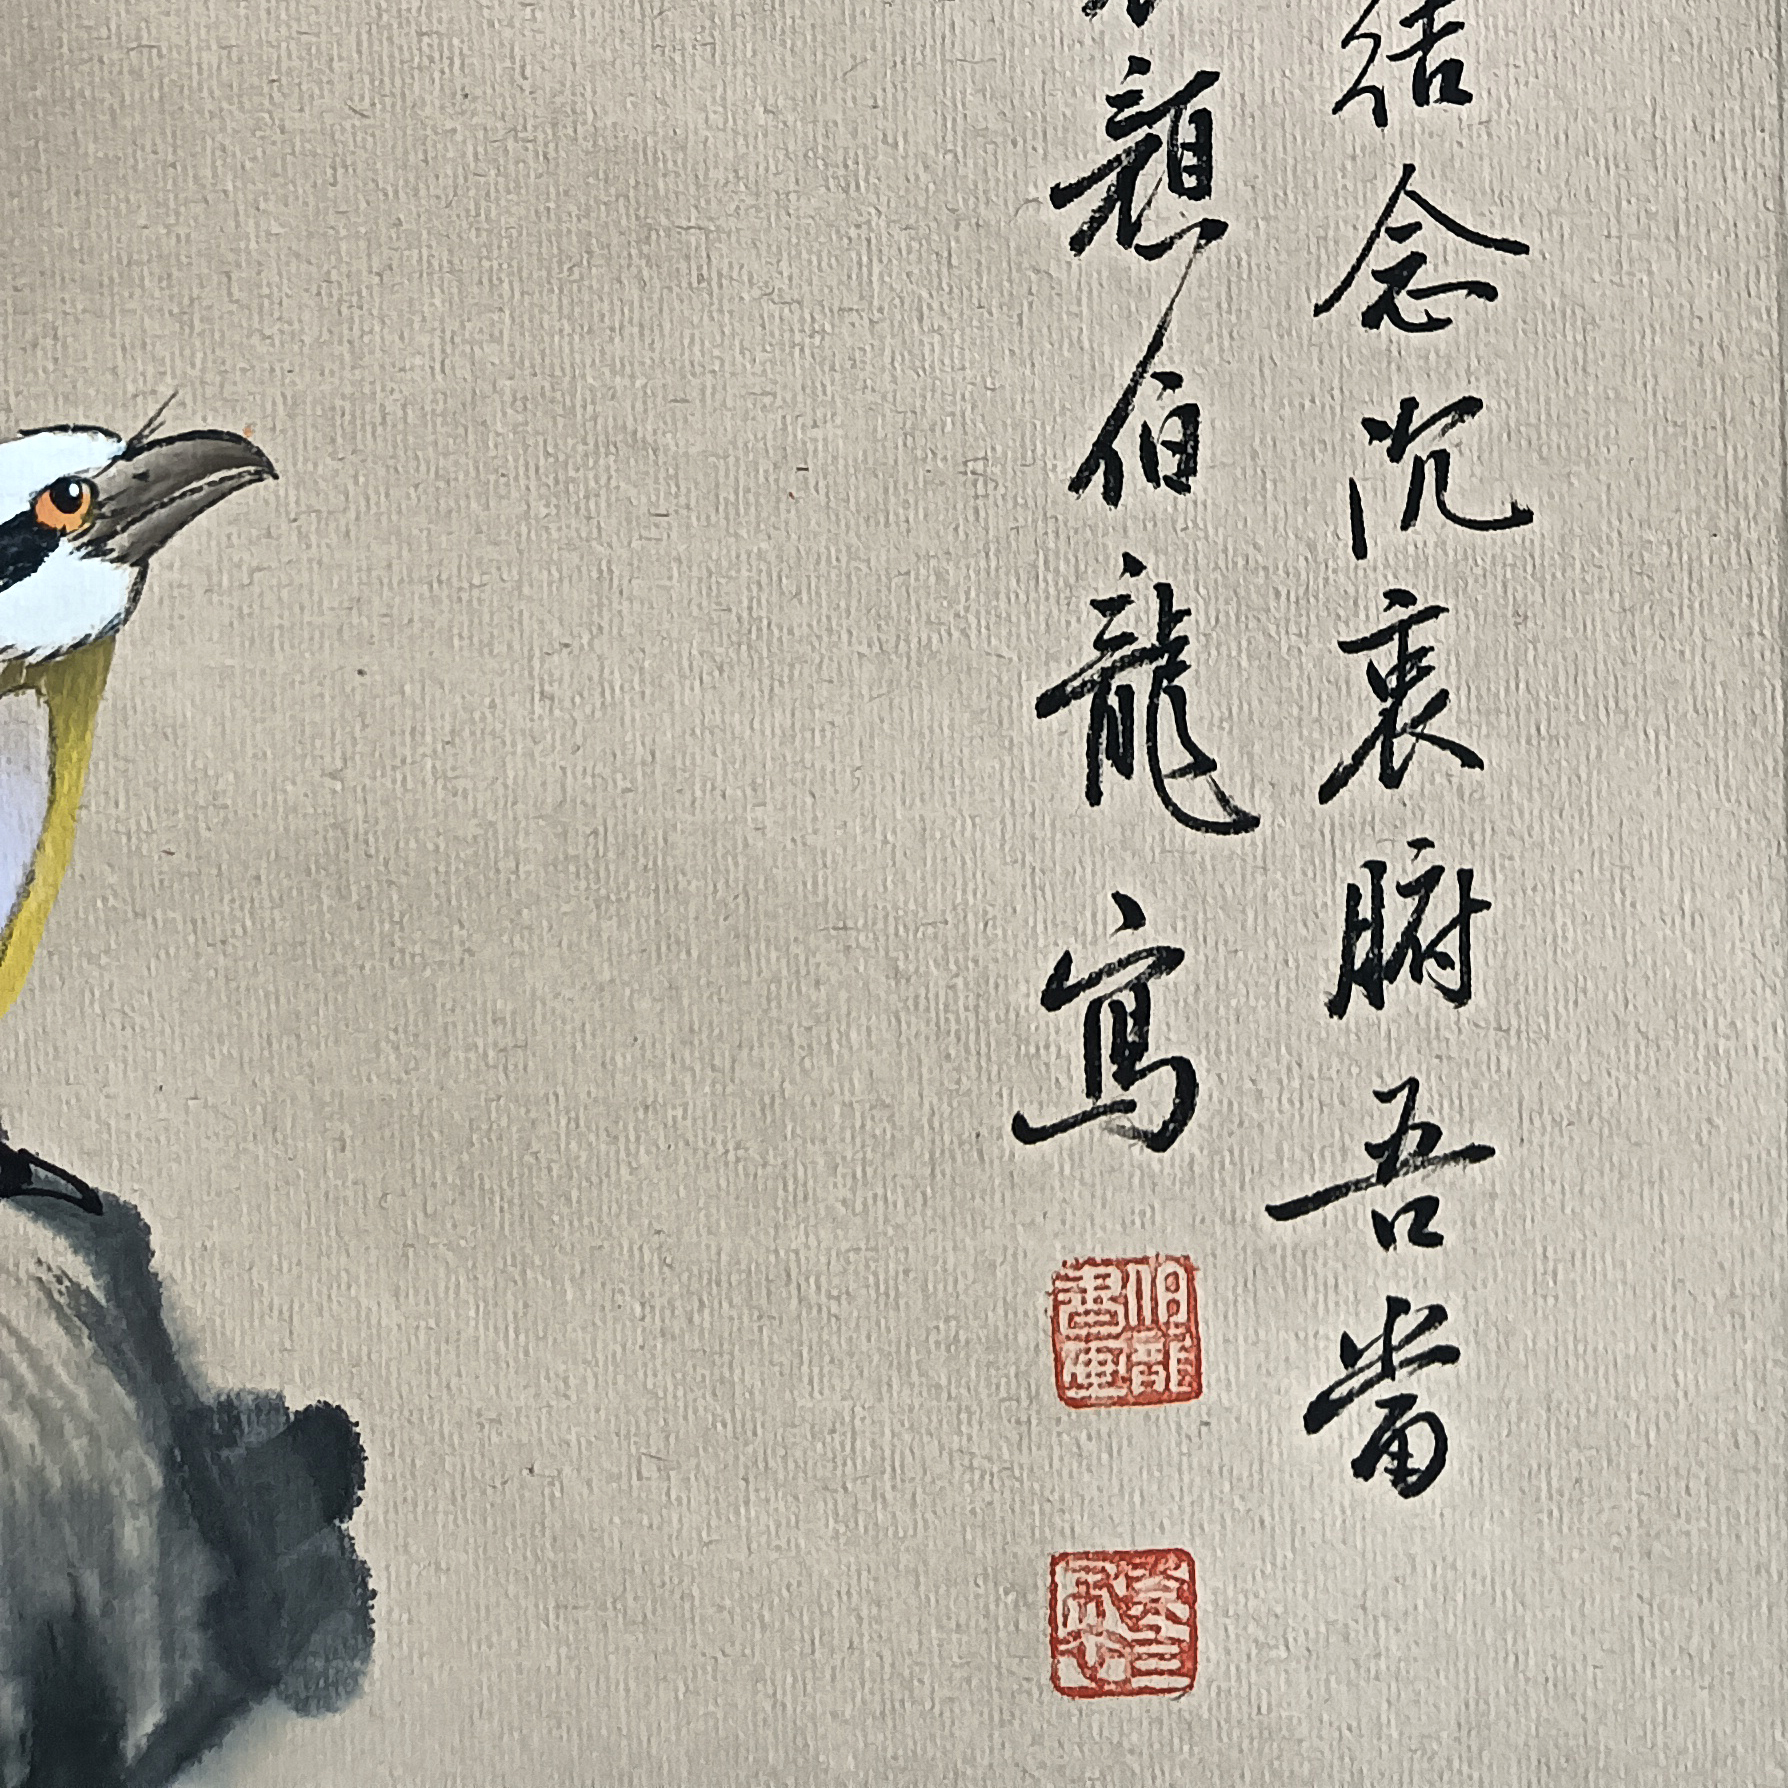 結念沉衷腑吾當
顏伯龍寫
伯龍書畫